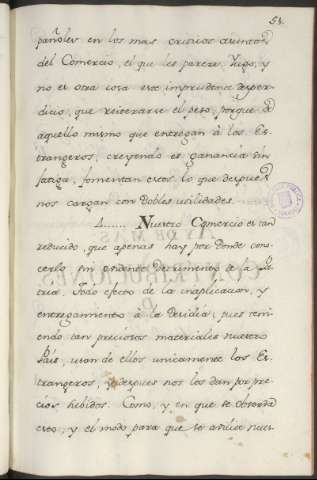 51.
pañoles en los mas criticos
del Comercio, el que les parece Yugo, y
no es otra cosa esta imprudencia desper-
dicio, que reiterarse el peso, porque de
aquello mismo que entregan à los Es-
trangeros, creyendo es ganancia sin
fatiga, fomentan estos lo que despues
nos cargan con dobles utilidades.
A...... Nuestro Comercio es tan
reducido, que apenas hay por donde cono-
cerlo sin evidente detrimento de la Pa-
tria, todo efecto de la inaplicacion, y
entregamiento à la Desidia, pues teni-
endo tan preciosos materiales nuestro
Pais, usan de ellos unicamente los Es-
trangeros, y despues nos los dan por pre-
cios hebidos. Como, y en que se observa
esto, y el modo para que se avive nues-